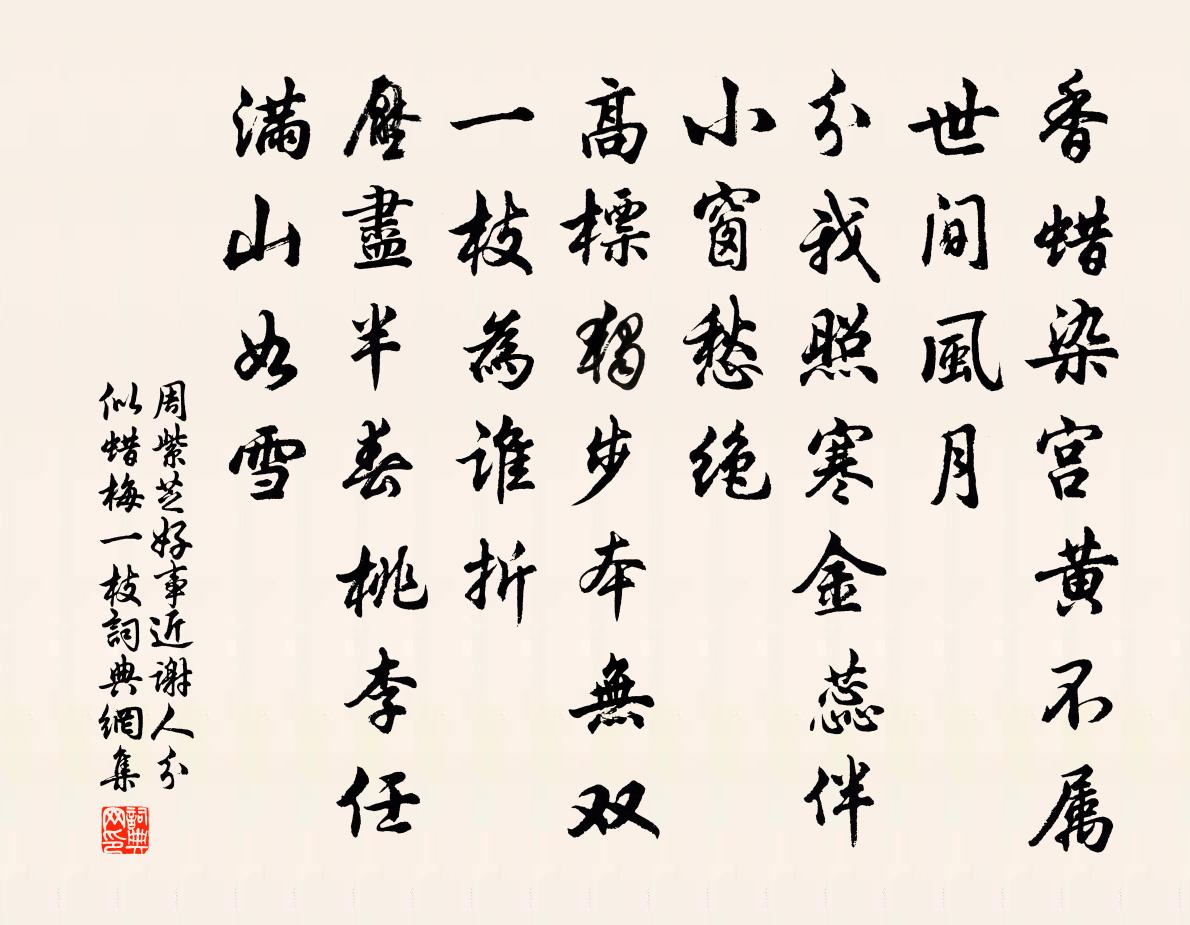 香蜡染宫黄不属
世间風月
分我照寒金蕊伴
小窗愁绝
高標獨步本無双
一枝為谁折
壓盡半春桃李任
满山如雪
周紫芝好事近谢人分
似蜡梅一枝詞典網集
詞典网印